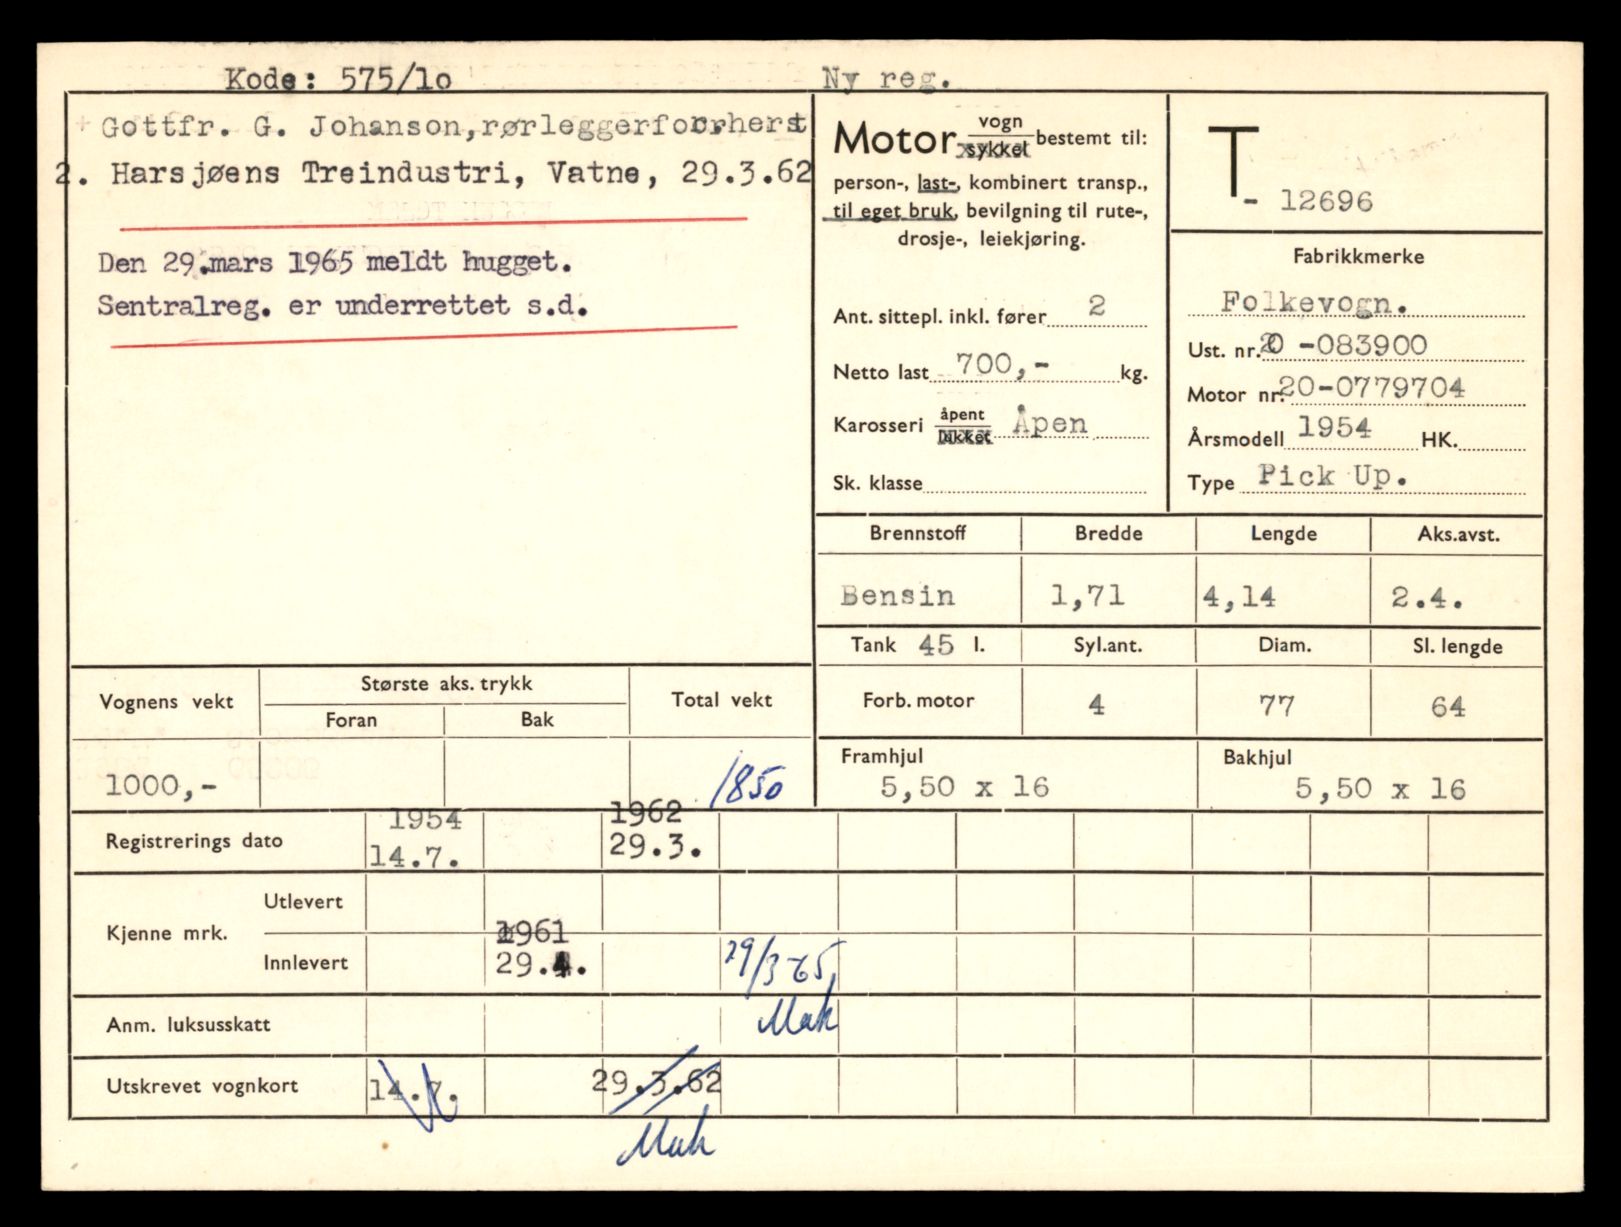 Kode: 575/lo
Ny reg.
Gottfr. G. Johanson, rørleggerforr.
2. Harsjøens Treindustri, Vatne, 29.3.62
Den 29.mars 1965 meldt hugget.
Sentralreg. er underrettet s.d.
Motor vogn sykkel bestemt til:
person-, last-, kombinert transp.,
til eget bruk, bevilgning til rute-,
drosje-, leiekjøring.
Ant. sittepl. inkl. fører 2
Netto last 700,- kg.
Karosseri åpent lukket Åpen
Sk. klasse
T - 12696
Fabrikkmerke
Folkevogn.
Ust. nr. 20 -083900
Motor nr. 20-0779704
Årsmodell 1954 HK.
Type Pick Up.
Brennstoff Bredde Lengde Aks.avst.
Bensin 1,71 4,14 2.4.
Tank 45 l. Syl.ant. Diam. Sl. lengde
Forb. motor 4 77 64
Framhjul Bakhjul
5,50 x 16 5,50 x 16
Vognens vekt Største aks. trykk Total vekt
Foran Bak
1000,- 1850
1954 1962
Registrerings dato 14.7. 29.3.
Utlevert
Kjenne mrk. 1961
Innlevert 29.4. 29/3 65
Mak
Anm. luksusskatt
Utskrevet vognkort 14.7. 29.3.62
Mak